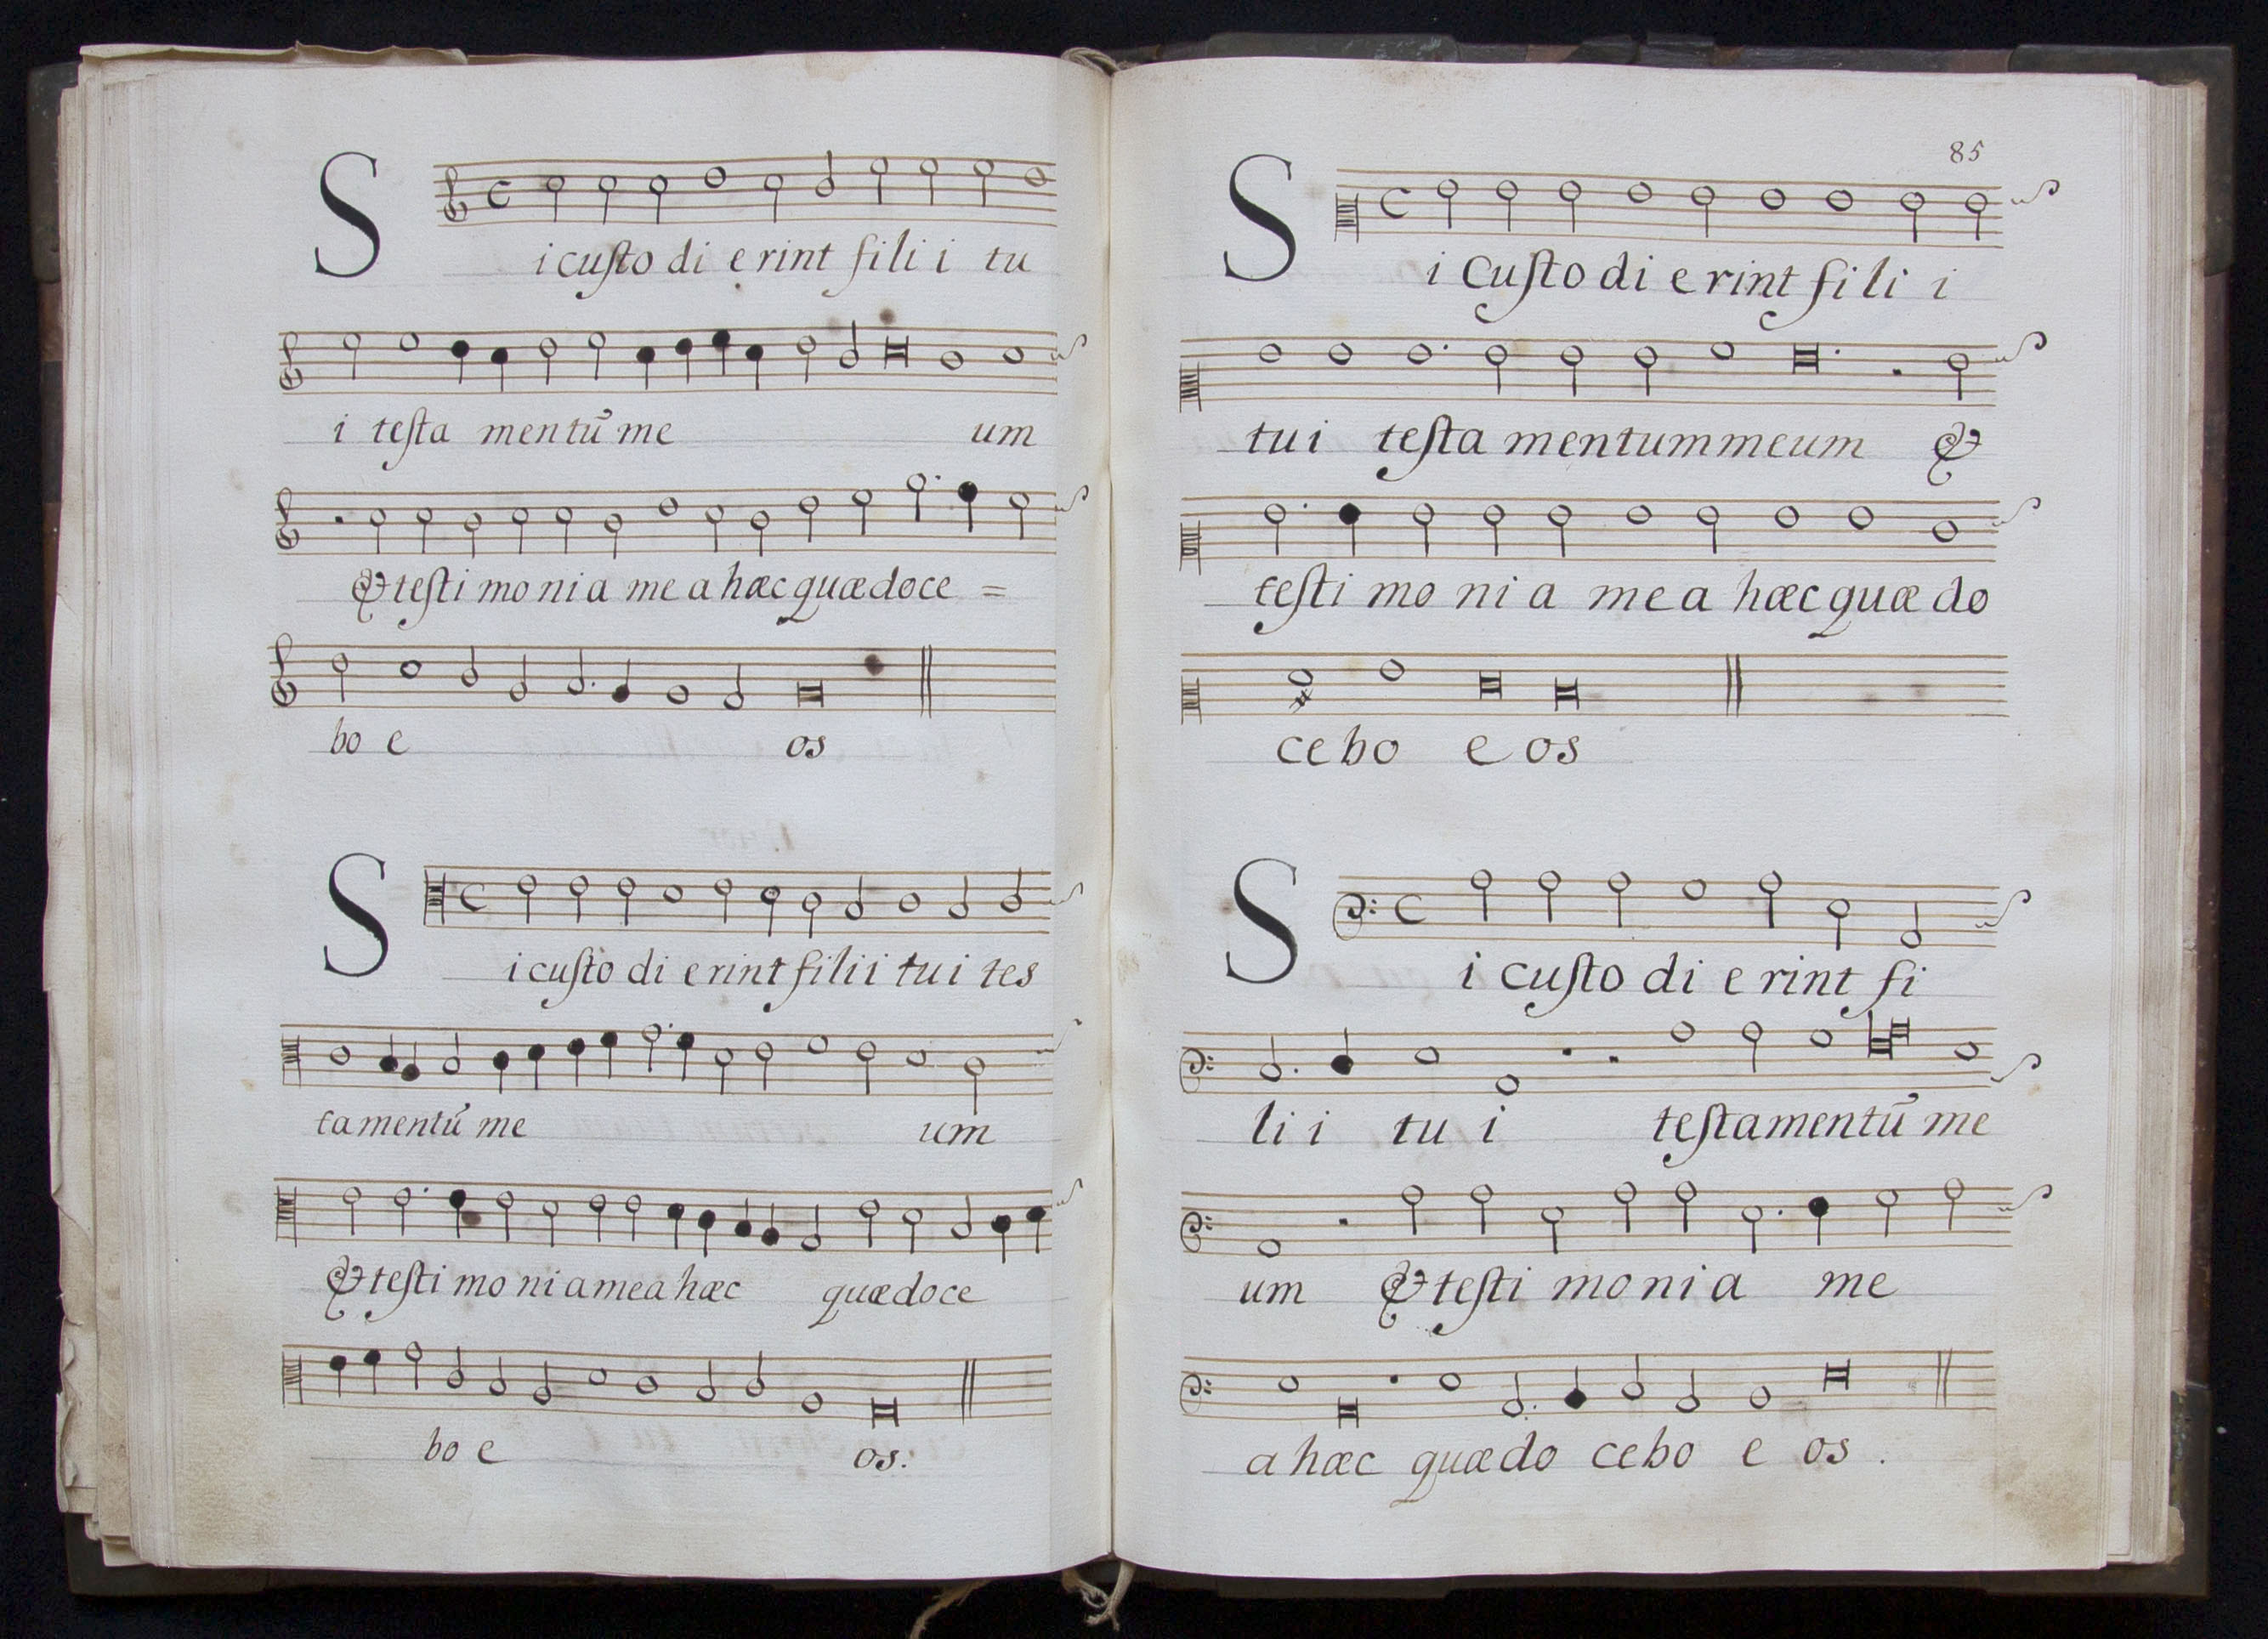 S i custo di e rint fili i tu
i testa mentũ me um
& testi mo ni a me a hæc quæ doce =
bo e os
S i custo di e rint filii tu i tes
ta mentũ me um
& testi mo ni a mea hæc quæ doce
bo e os.
85
S i Custo di e rint fi li i
tu i testa mentum meum &
testi mo ni a me a hæc quæ do
ce bo e os
S i custo di e rint fi
li i tu i testamentũ me
um & testi mo ni a me
a hæc quæ do ce bo e os .